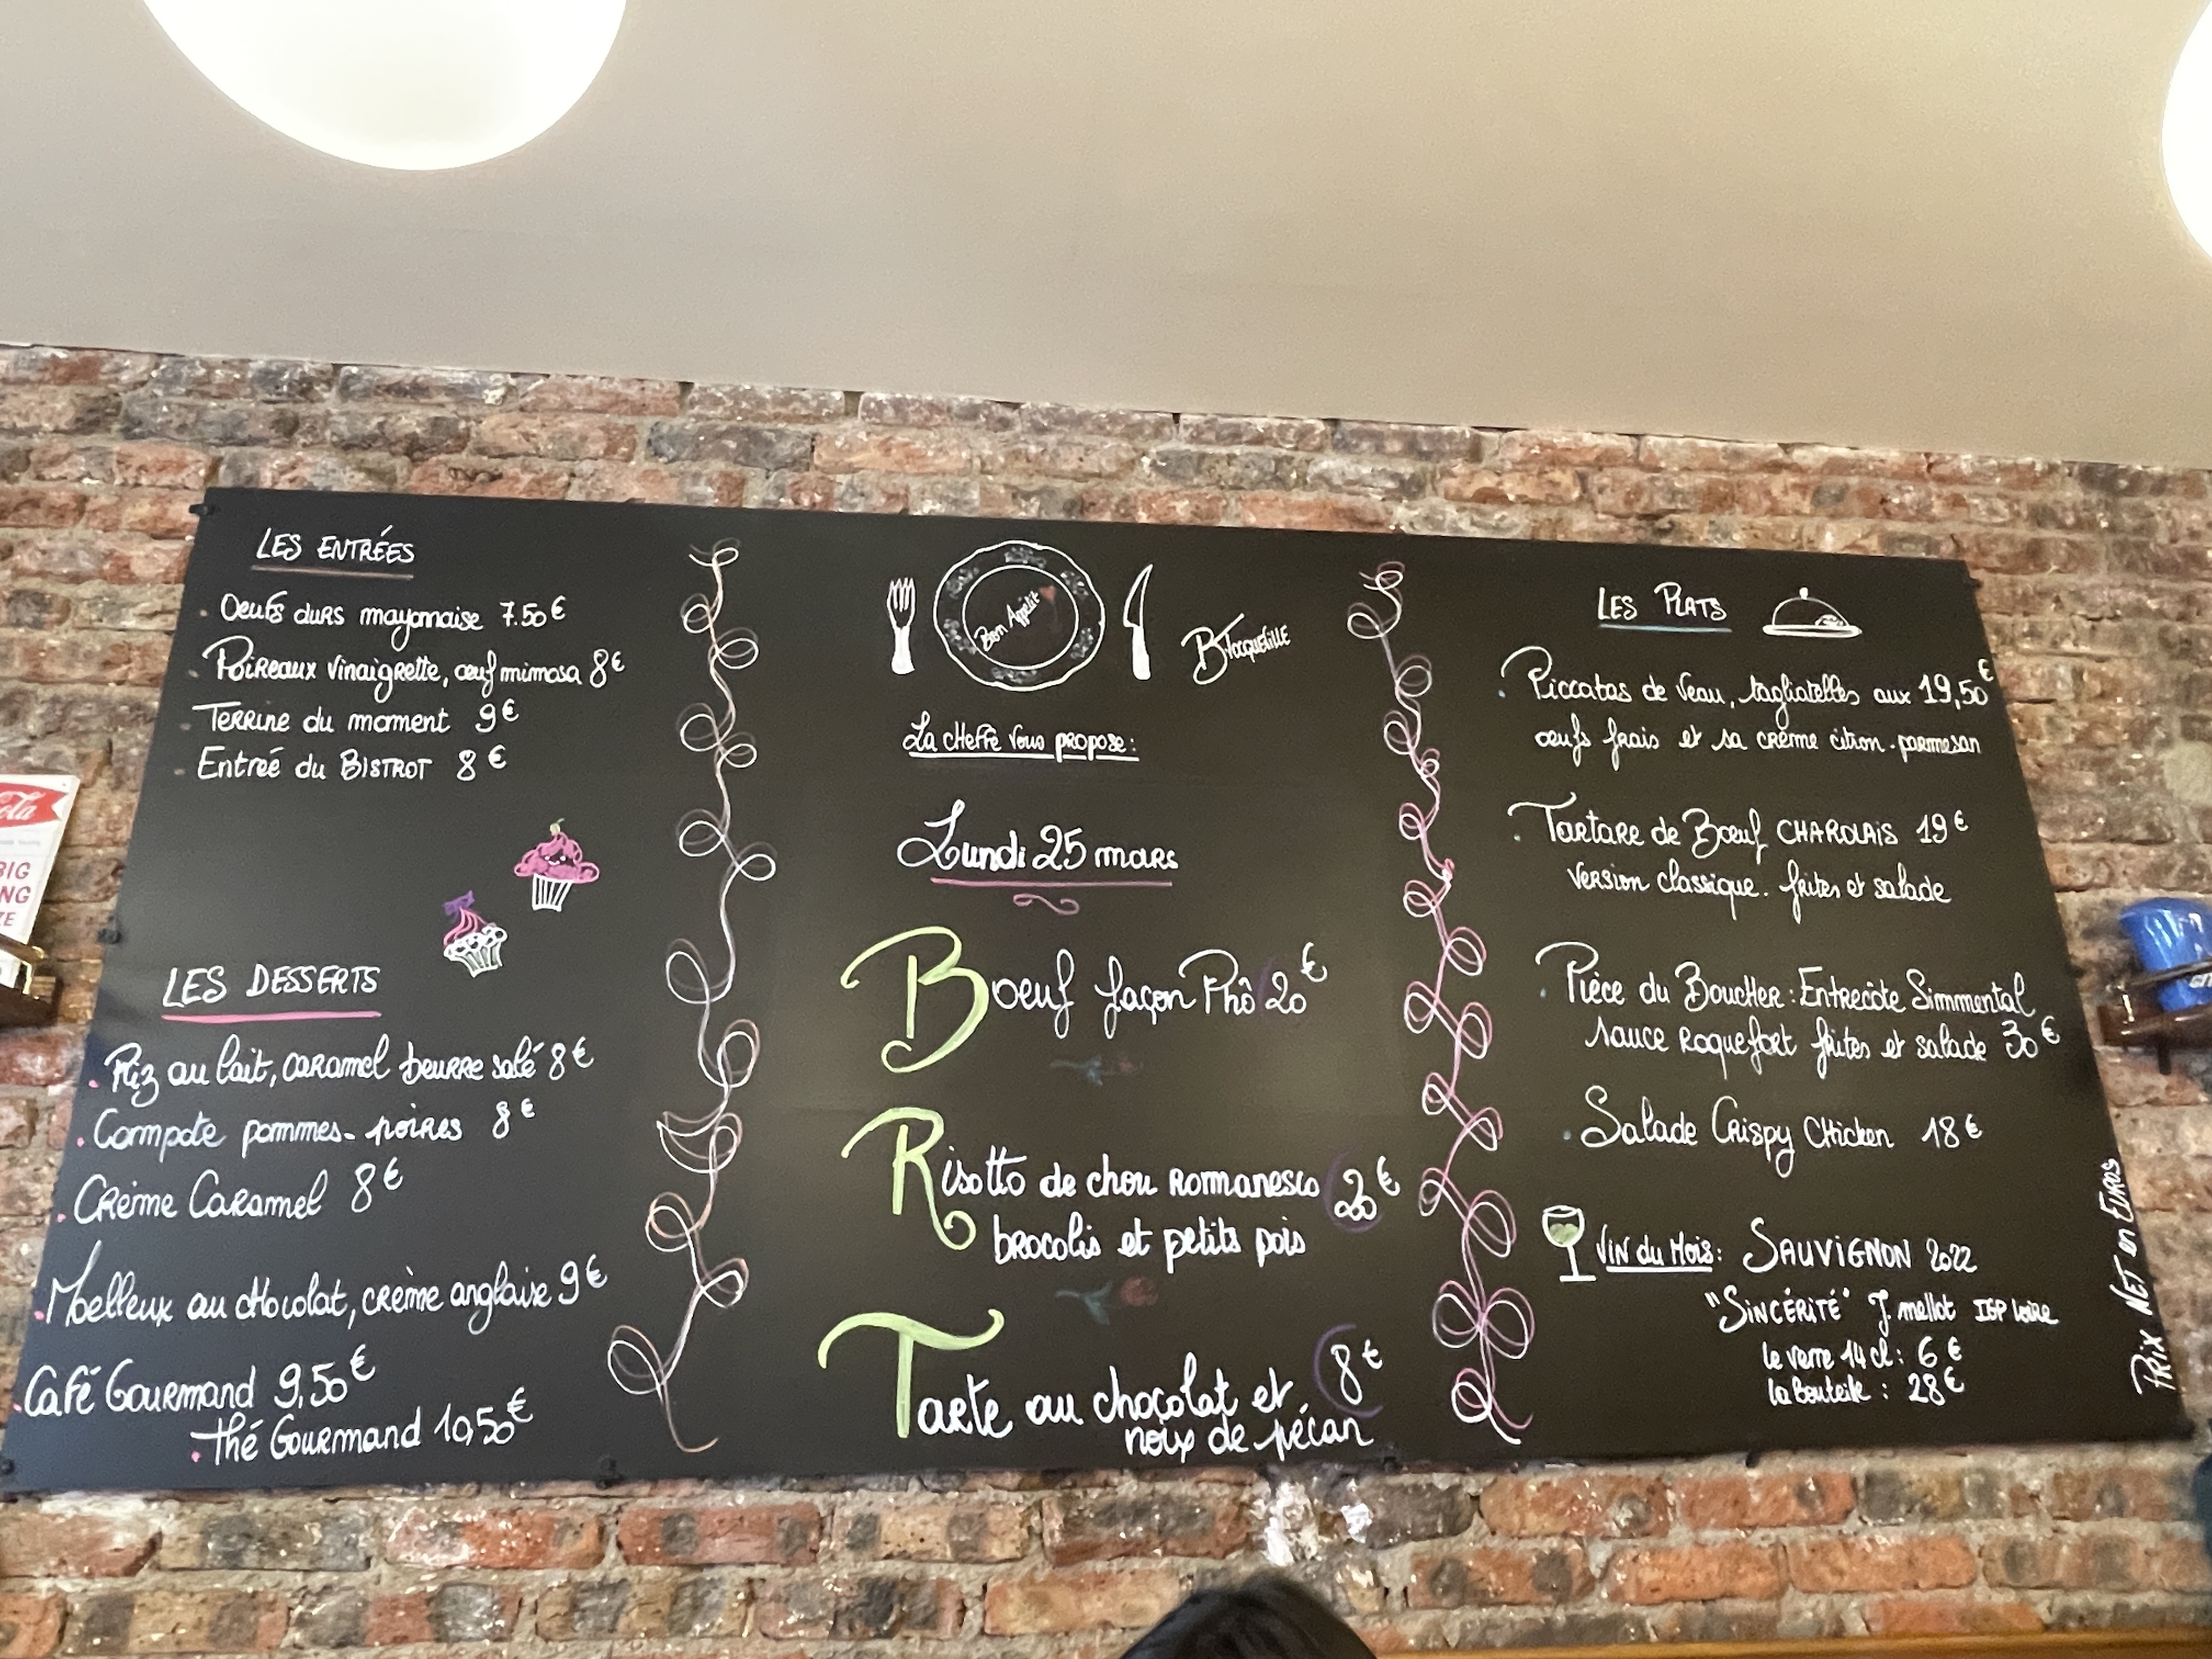 LES ENTRÉES
Oeufs durs mayonnaise 7.50€
Poireaux vinaigrette, œuf mimosa 8€
Terrine du moment 9€
Entreé du BISTROT 8€
LES DESSERTS
Riz au lait, caramel beurre salé 8€
Compote pommes-poires 8€
Crème Caramel 8€
Moelleux au chocolat, crème anglaise 9€
Café Gourmand 9,50€
thé Gourmand 10,50€
Bon Appétit
La cheffe vous propose:
Lundi 25 mars
Boeuf façon Phô 20€
Risotto de chou romanesco 20€
brocolis et petits pois
Tarte au chocolat et 8€
noix de pécan
LES PLATS
Piccatas de Veau, tagliatelles aux 19,50€
œufs frais et sa crème citron-parmesan
Tartare de Bœuf CHAROLAIS 19€
Version classique. frites et salade
Pièce du Boucher: Entrecôte Simmental
sauce roquefort frites et salade 30€
Salade Crispy Chicken 18€
VIN du Mois: SAUVIGNON 2022
"SINCÉRITÉ" J. mellot IGP Loire
le verre 14cl: 6€
la Bouteille: 28€
PRIX NET en Euros
Cola
BIG
NG
ZE